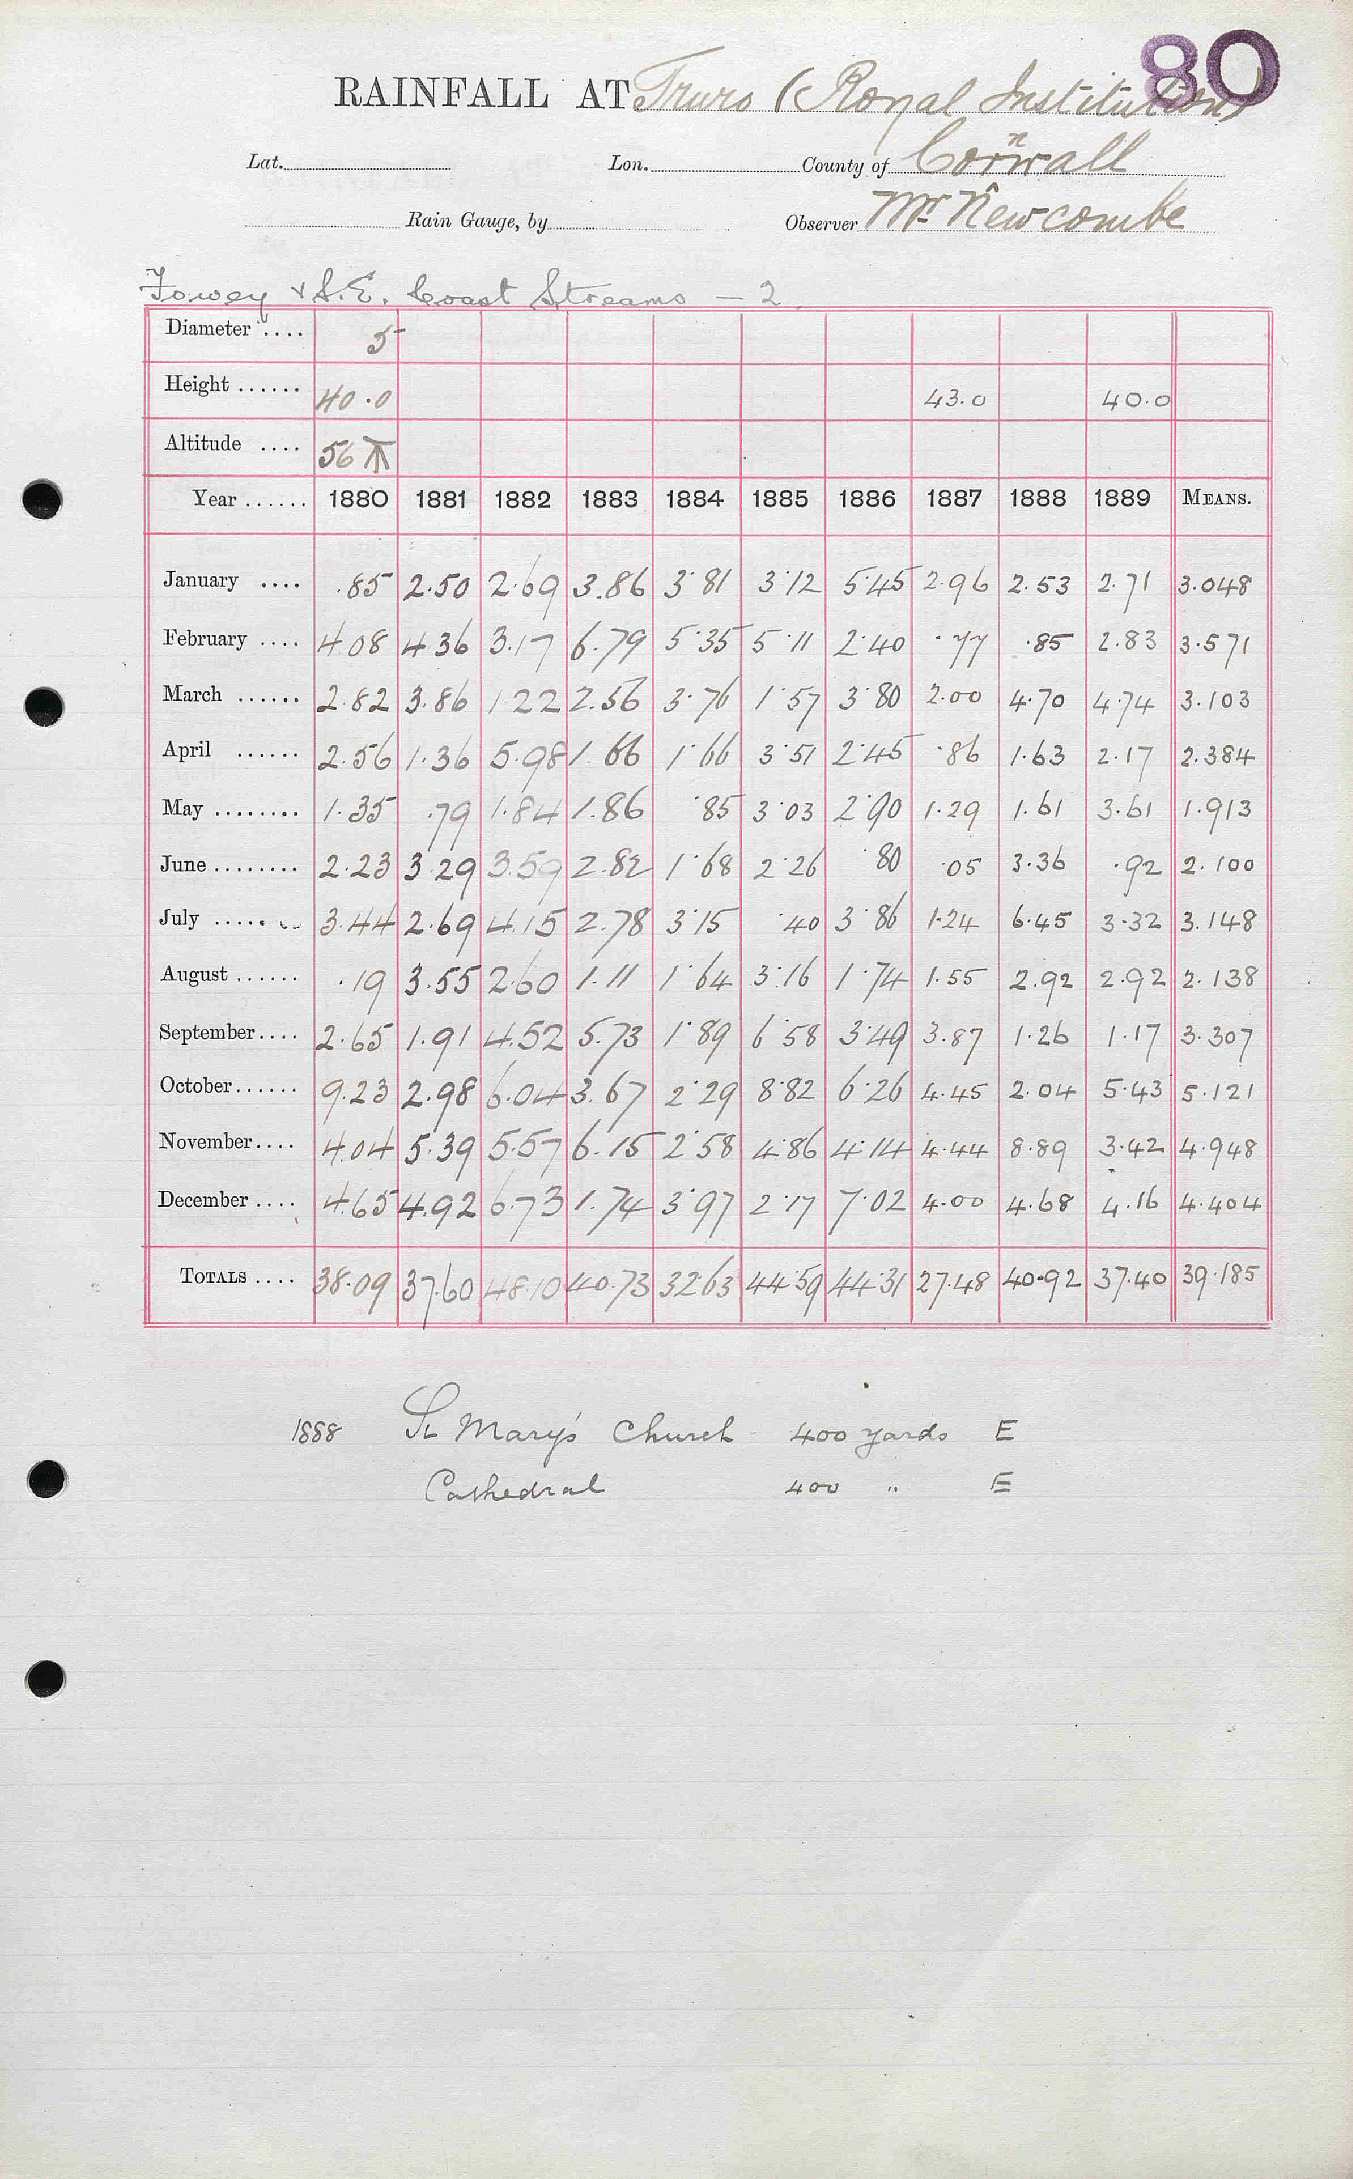 80
RAINFALL AT Truro (Royal Institution)
Lat. Lon. County of Cornwall
Rain Gauge, by Observer Mr Newcombe
Fowey & S.E. Coast Streams — 2
Diameter .... 5
Height ...... 40.0 43.0 40.0
Altitude .... 56
Year ...... 1880 1881 1882 1883 1884 1885 1886 1887 1888 1889 MEANS.
January .... .85 2.50 2.69 3.86 3.81 3.12 5.45 2.96 2.53 2.71 3.048
February .... 4.08 4.36 3.17 6.79 5.35 5.11 2.40 .77 .85 2.83 3.571
March ...... 2.82 3.86 1.22 2.56 3.76 1.57 3.80 2.00 4.70 4.74 3.103
April ...... 2.56 1.36 5.98 1.66 1.66 3.51 2.45 .86 1.63 2.17 2.384
May ........ 1.35 .79 1.84 1.86 .85 3.03 2.90 1.29 1.61 3.61 1.913
June ........ 2.23 3.29 3.59 2.82 1.68 2.26 .80 .05 3.36 .92 2.100
July ........ 3.44 2.69 4.15 2.78 3.15 .40 3.86 1.24 6.45 3.32 3.148
August ...... .19 3.55 2.60 1.11 1.64 3.16 1.74 1.55 2.92 2.92 2.138
September .... 2.65 1.91 4.52 5.73 1.89 6.58 3.49 3.87 1.26 1.17 3.307
October ...... 9.23 2.98 6.04 3.67 2.29 8.82 6.26 4.45 2.04 5.43 5.121
November .... 4.04 5.39 5.57 6.15 2.58 4.86 4.14 4.44 8.89 3.42 4.948
December .... 4.65 4.92 6.73 1.74 3.97 2.17 7.02 4.00 4.68 4.16 4.404
TOTALS .... 38.09 37.60 48.10 40.73 32.63 44.59 44.31 27.48 40.92 37.40 39.185
1888 St Mary's Church 400 yards E
Cathedral 400 " E